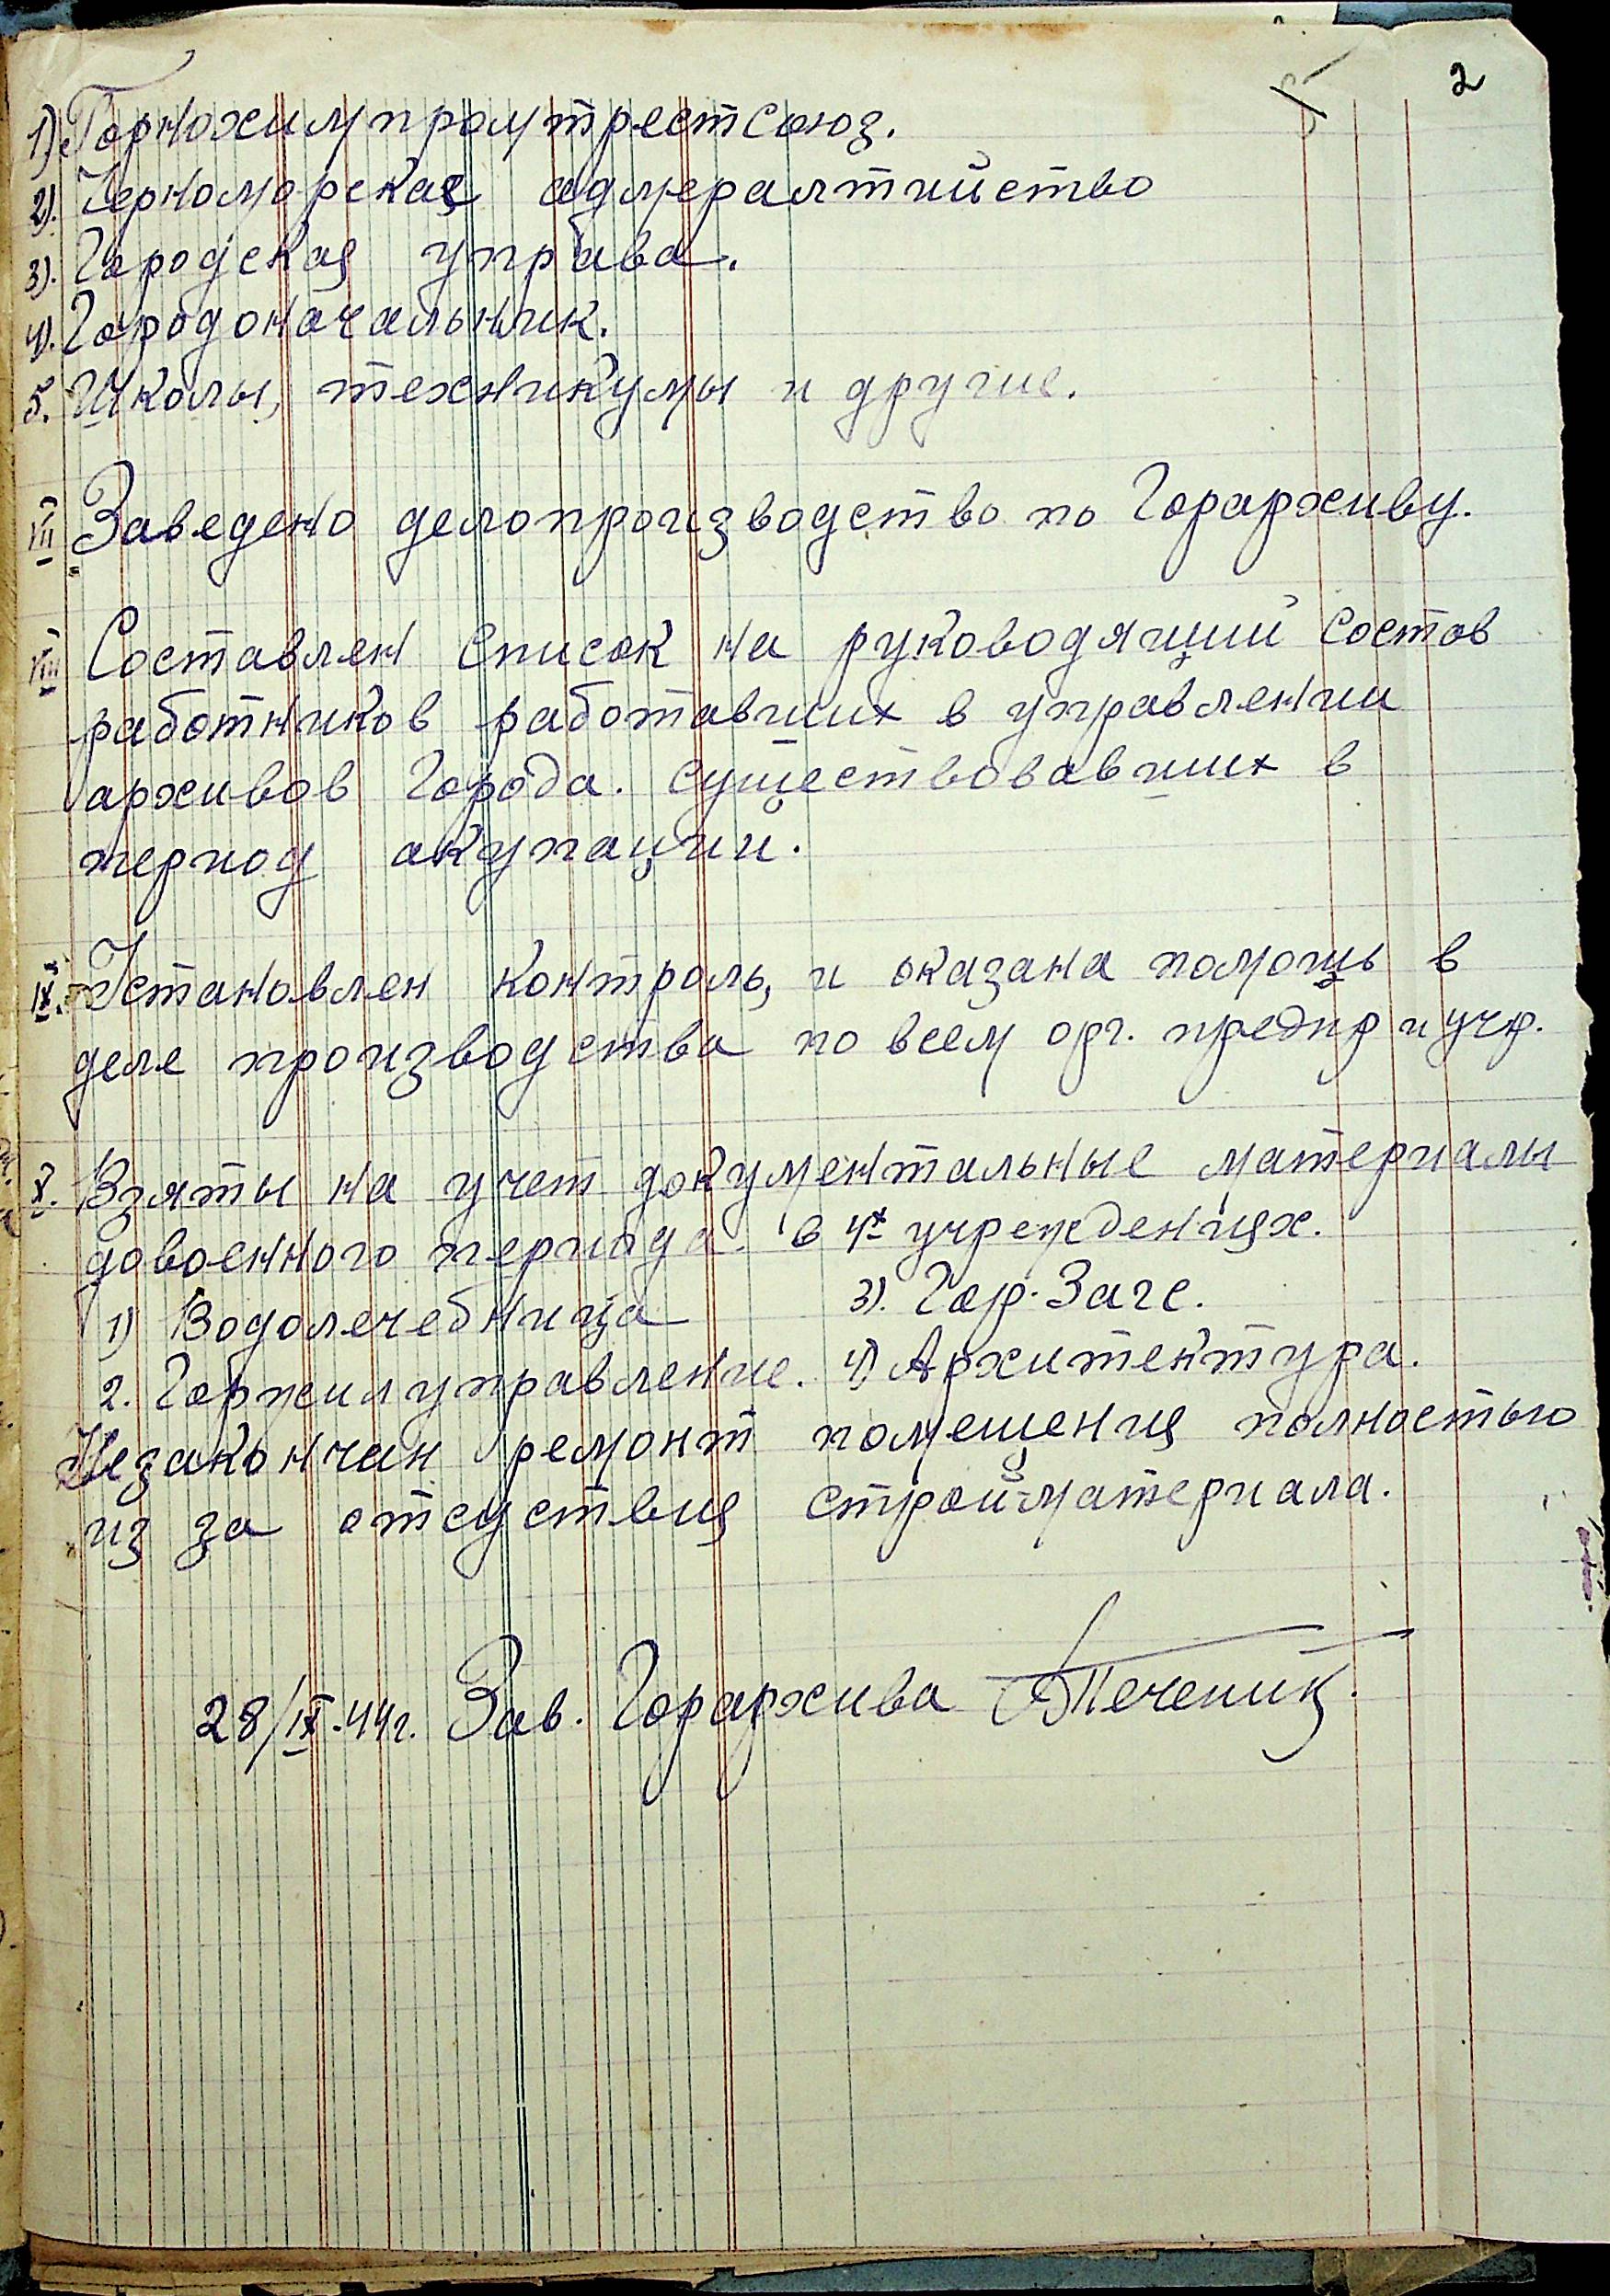 2
1) Горнохимпромтрестсоюз.
2). Черноморская адмералтийство
3). Городская управа.
4). Городоначальник.
5. Школы, техникумы и другие.
VII Заведено делопроизводство по Горархиву.
VIII Составлен список на руководящий состав
работников работавших в управлении
архивов Города. существовавших в
период окупации.
IX. Установлен контроль, и оказана помощь в
деле производства по всем орг. предпр и учр.
X. Взяты на учет документальные материалы
довоенного периода. в 4х учреждениях.
1) Водолечебница 3). Гор. Загс.
2. Горжилуправление. 4) Архитектура.
Незакончин ремонт помещения полностью
из за отсуствия стройматериала.
28/IX-44г. Зав. Горархива